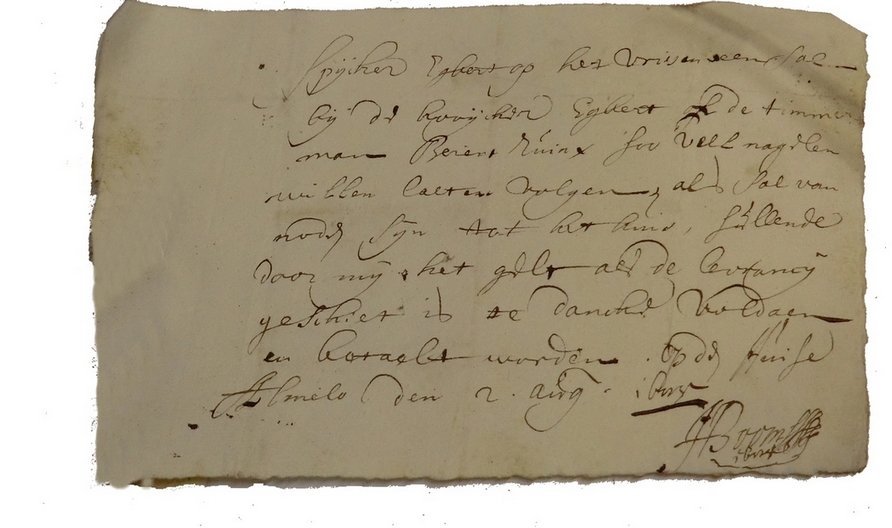 Spijcker Egbert op het Vriesenveen sal
bij de kooijcker Egbert of de timmer
man Berent Kuinx soo veel nagelen
willen laeten volgen, als sal van
noden sijn tot het huis, sullende
door mij het gelt als de leverancij
geschiet is te dancke voldaen
en betaelt worden. op den Huise
Almelo den 2. aug.